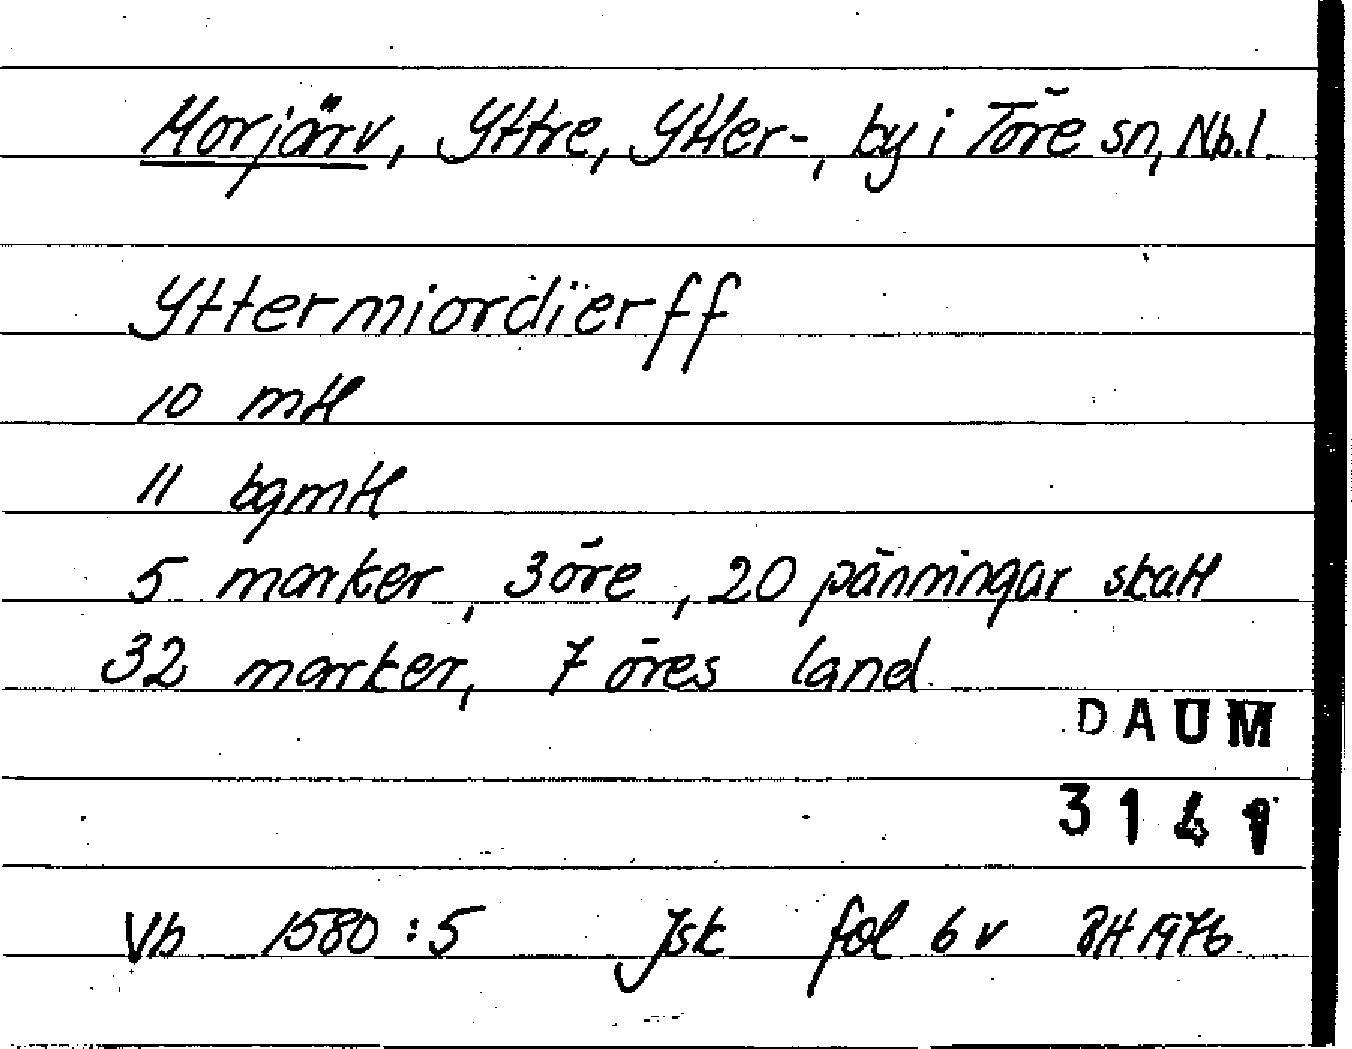 Morjärv, Yttre, Ytter-, by i Töre sn, Nb.l.
Yttermiordierff
10 mtl
11 bgmtl
5 marker, 3 öre, 20 pänningar skatt
32 marker, 7 öres land
DAUM
3141
Vb 1580:5 Jsk fol 6 v BH 1976